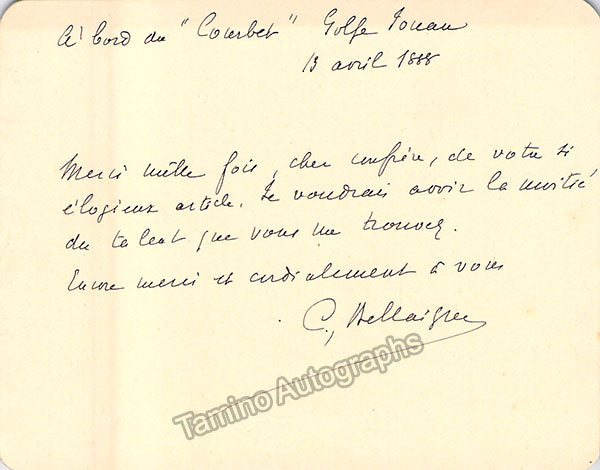 A' bord du "Courbet" Golfe Jouan
13 avril 1888
Merci mille fois, cher confrère, de votre si
élogieux article. Je voudrais avoir la moitié
du talent que vous me trouvez.
Encore merci et cordialement à vous
C. Bellaigue
Tamino Autographs